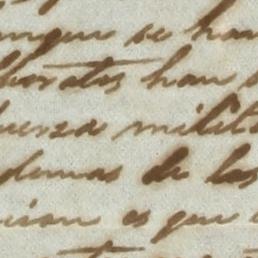 unque se han
boratos han
uerza milita
demas de las
cion es que